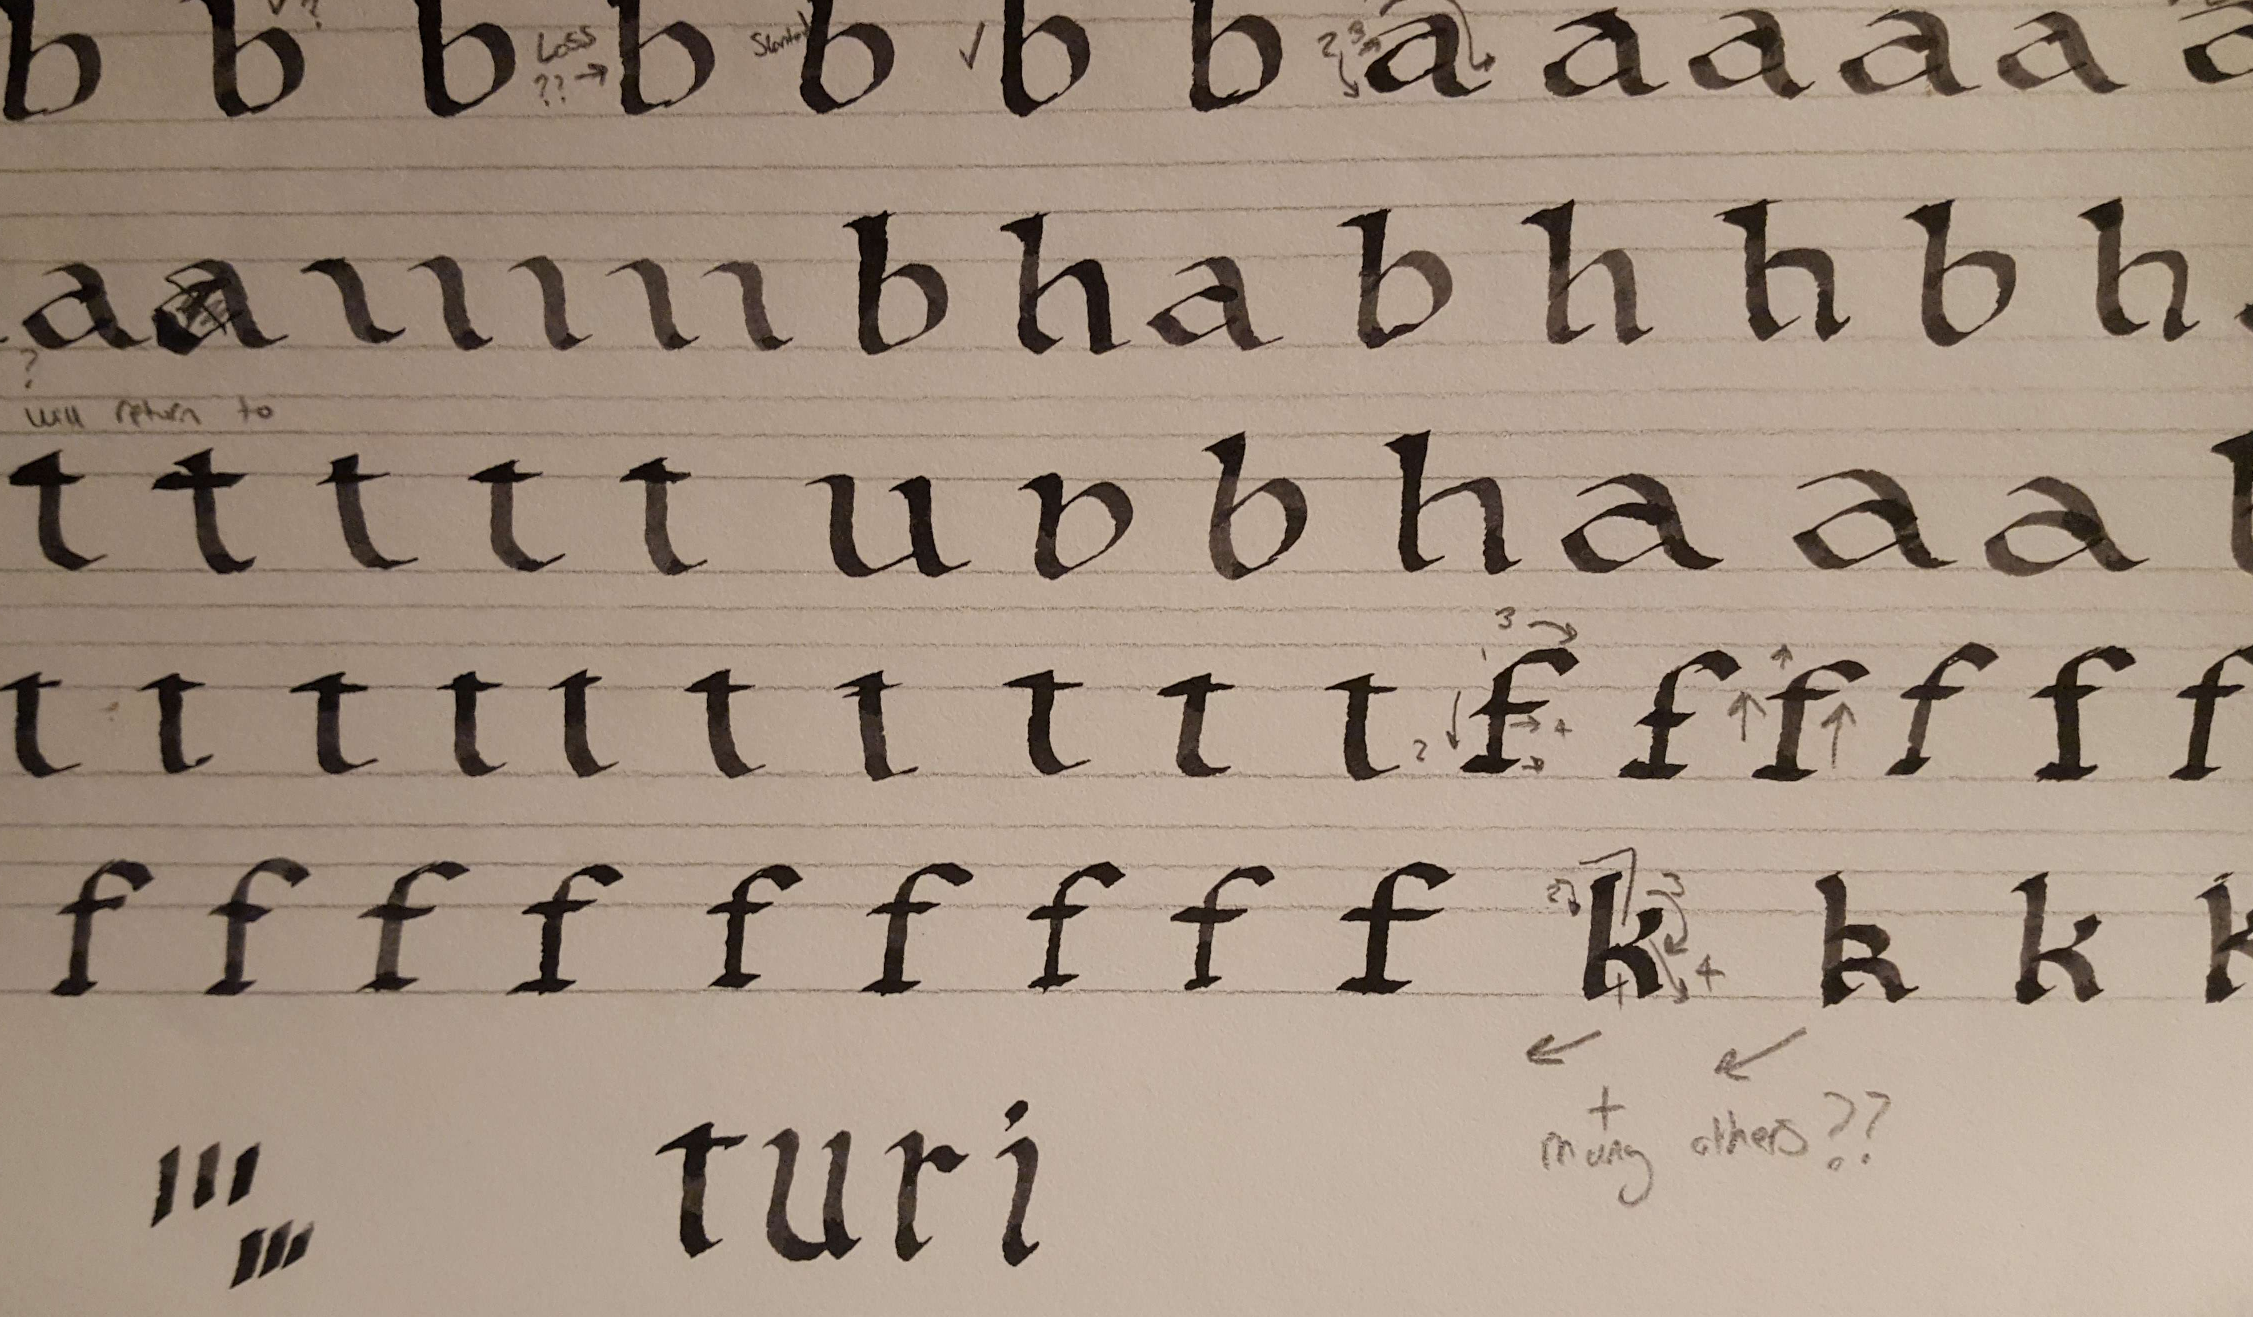 b b ? b Loss ?? → b Slanted b ✓ b b 2 3 a a a a a a
a a ı ı ı ı ı b h a b h h b h
?
will return to
t t t t t u b h a a a
3
t t t t t t t t t t 2 f 4 f f f f f
f f f f f f f f f 2 k 3 4 k k k
+
many others??
turi